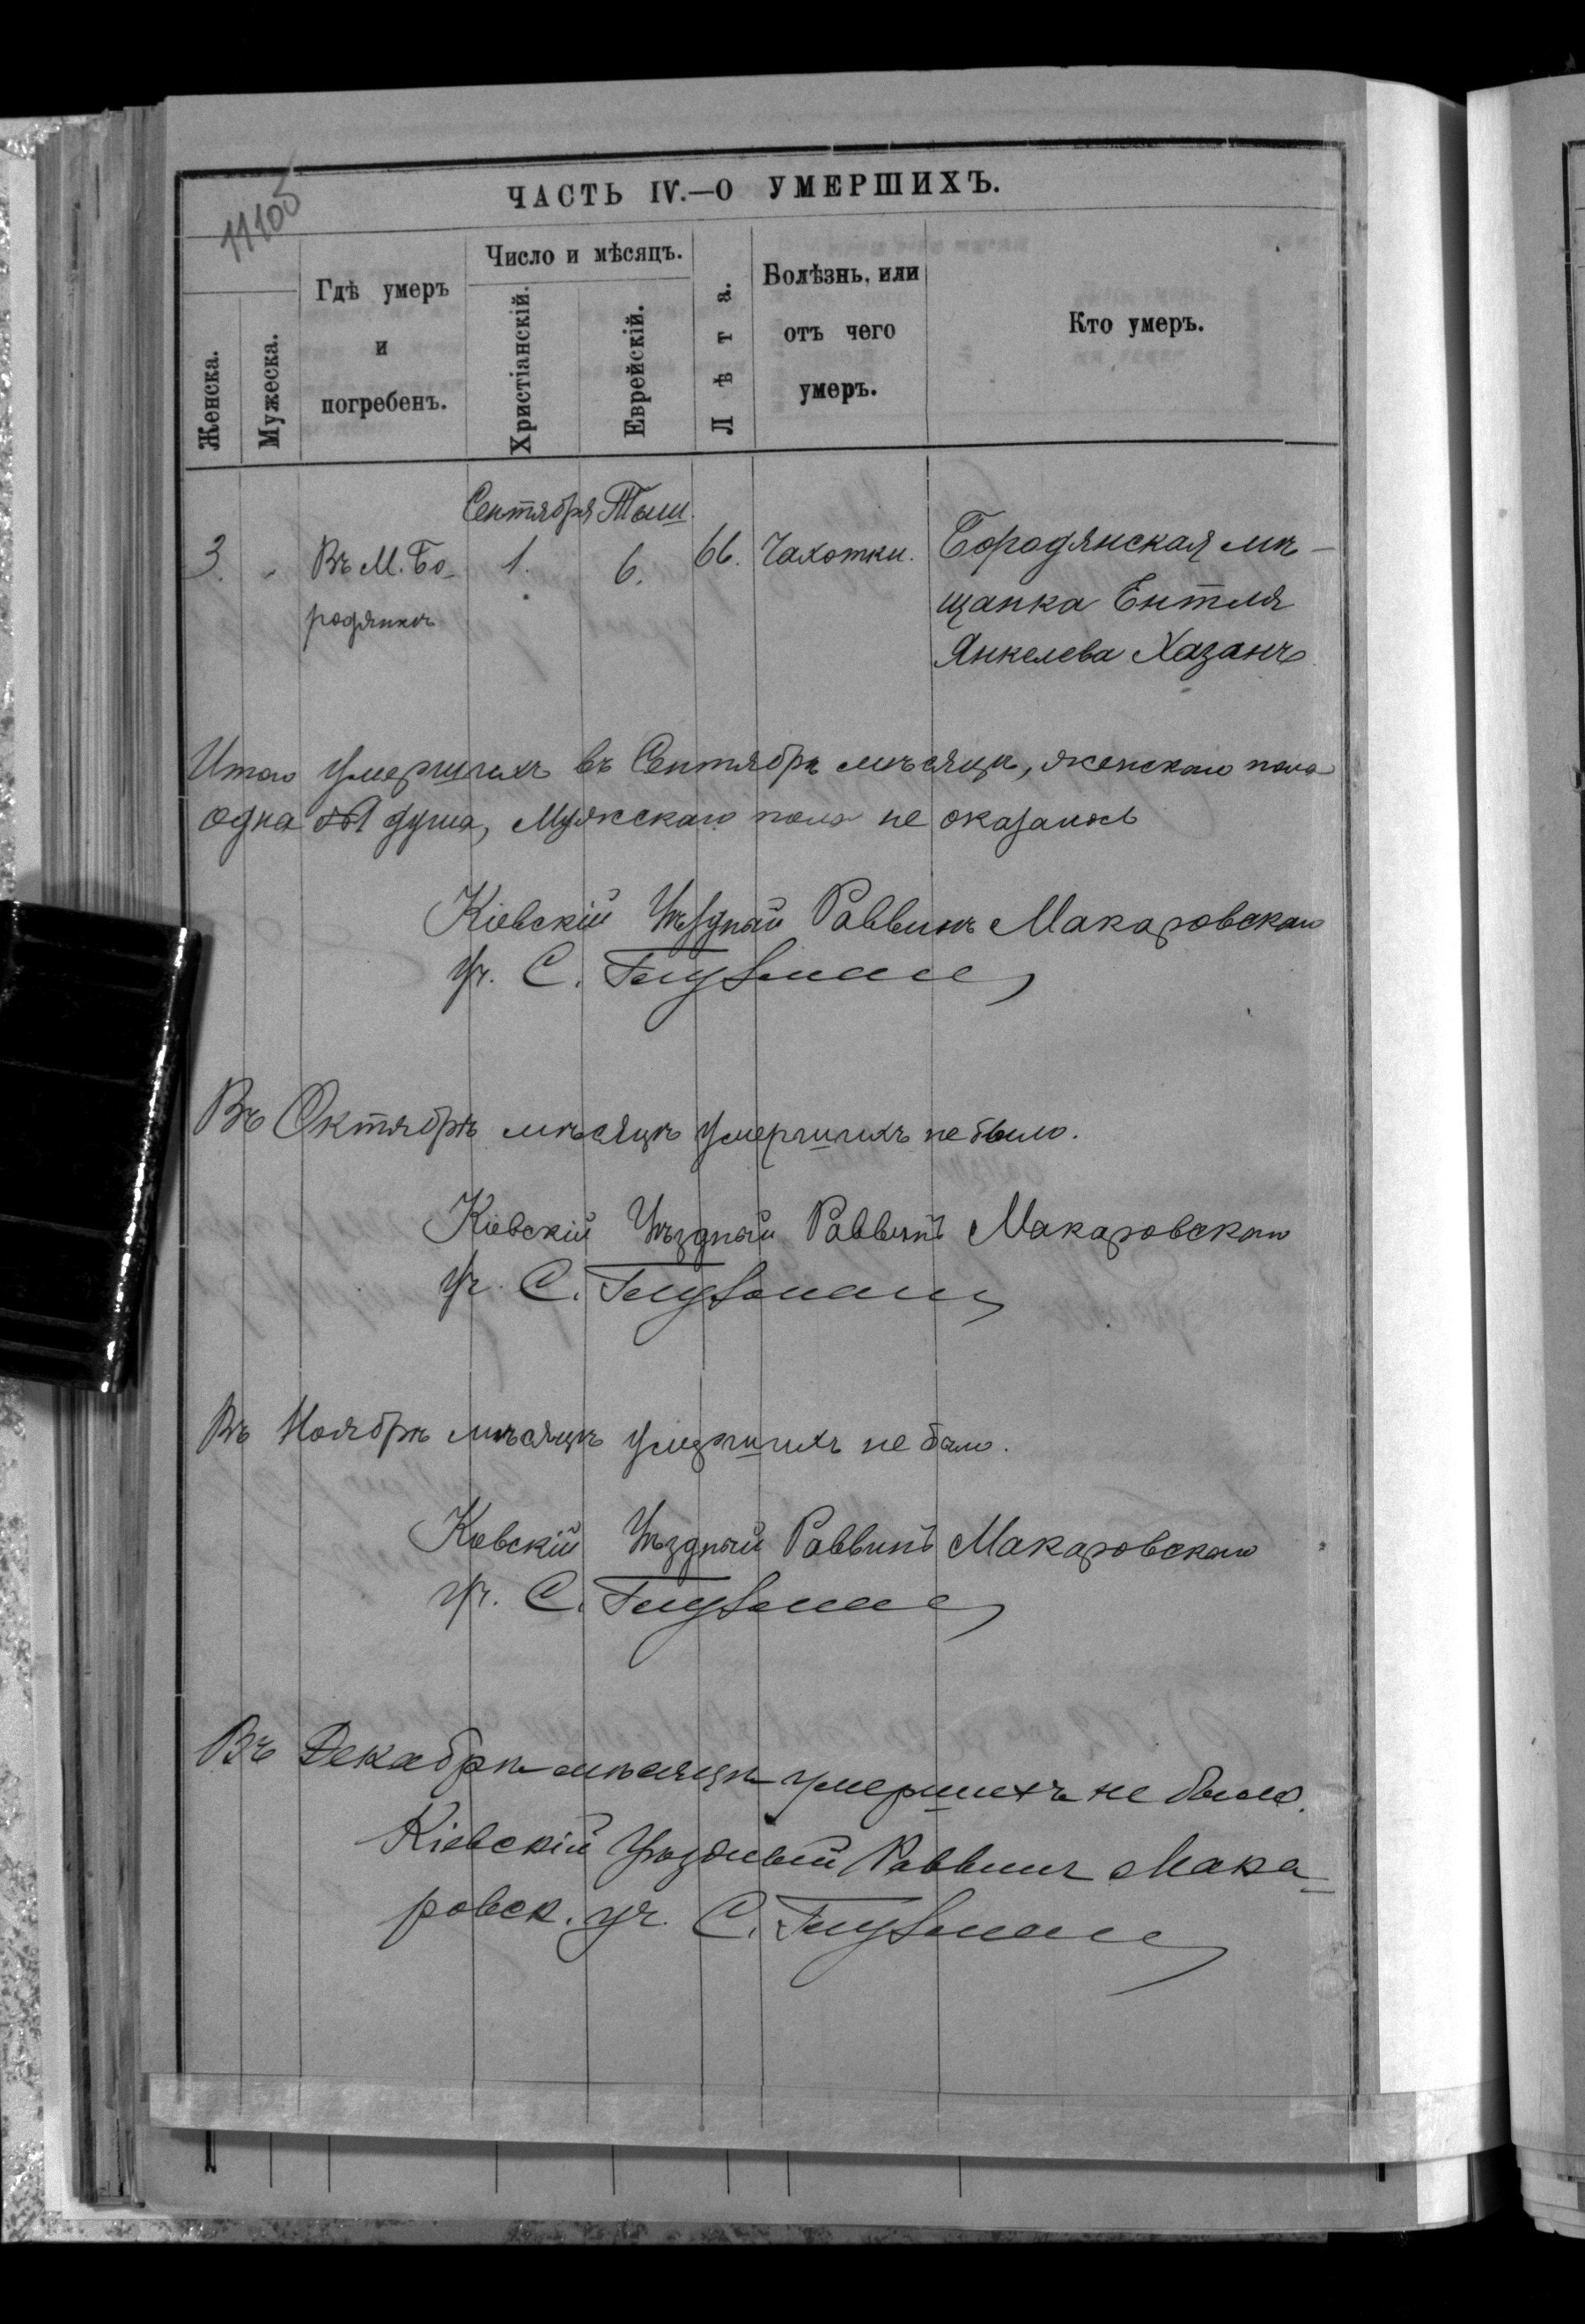 ЧАСТЬ IV.—О УМЕРШИХЪ.
Женска.
Мужеска.
Гдѣ умеръ
и
погребенъ.
Число и мѣсяцъ.
Христіанскій.
Еврейскій.
Лѣта.
Болѣзнь, или
отъ чего
умеръ.
Кто умеръ.
Сентября Тыш.
3. „ Въ М. Бо- 1. 6. 66. Чахотки. Бородянская мѣ-
родянкѣ щанка Ентля
Янкелева Хазанъ
Итого умершихъ въ Сентябрѣ мѣсяцѣ, женскаго пола
одна душа, Мужскаго пола не оказалось
Кіевскій Уѣздный Раввинъ Макаровскаго
уч. С. Глузманъ
Въ Октябрѣ мѣсяцѣ умершихъ не было.
Кіевскій Уѣздный Раввинъ Макаровскаго
уч. С. Глузманъ
Въ Ноябрѣ мѣсяцѣ умершихъ не было.
Кіевскій Уѣздный Раввинъ Макаровскаго
уч. С. Глузманъ
Въ Декабрѣ мѣсяцѣ умершихъ не было.
Кіевскій Уѣздный Раввинъ Мака-
ровск. уч. С. Глузманъ